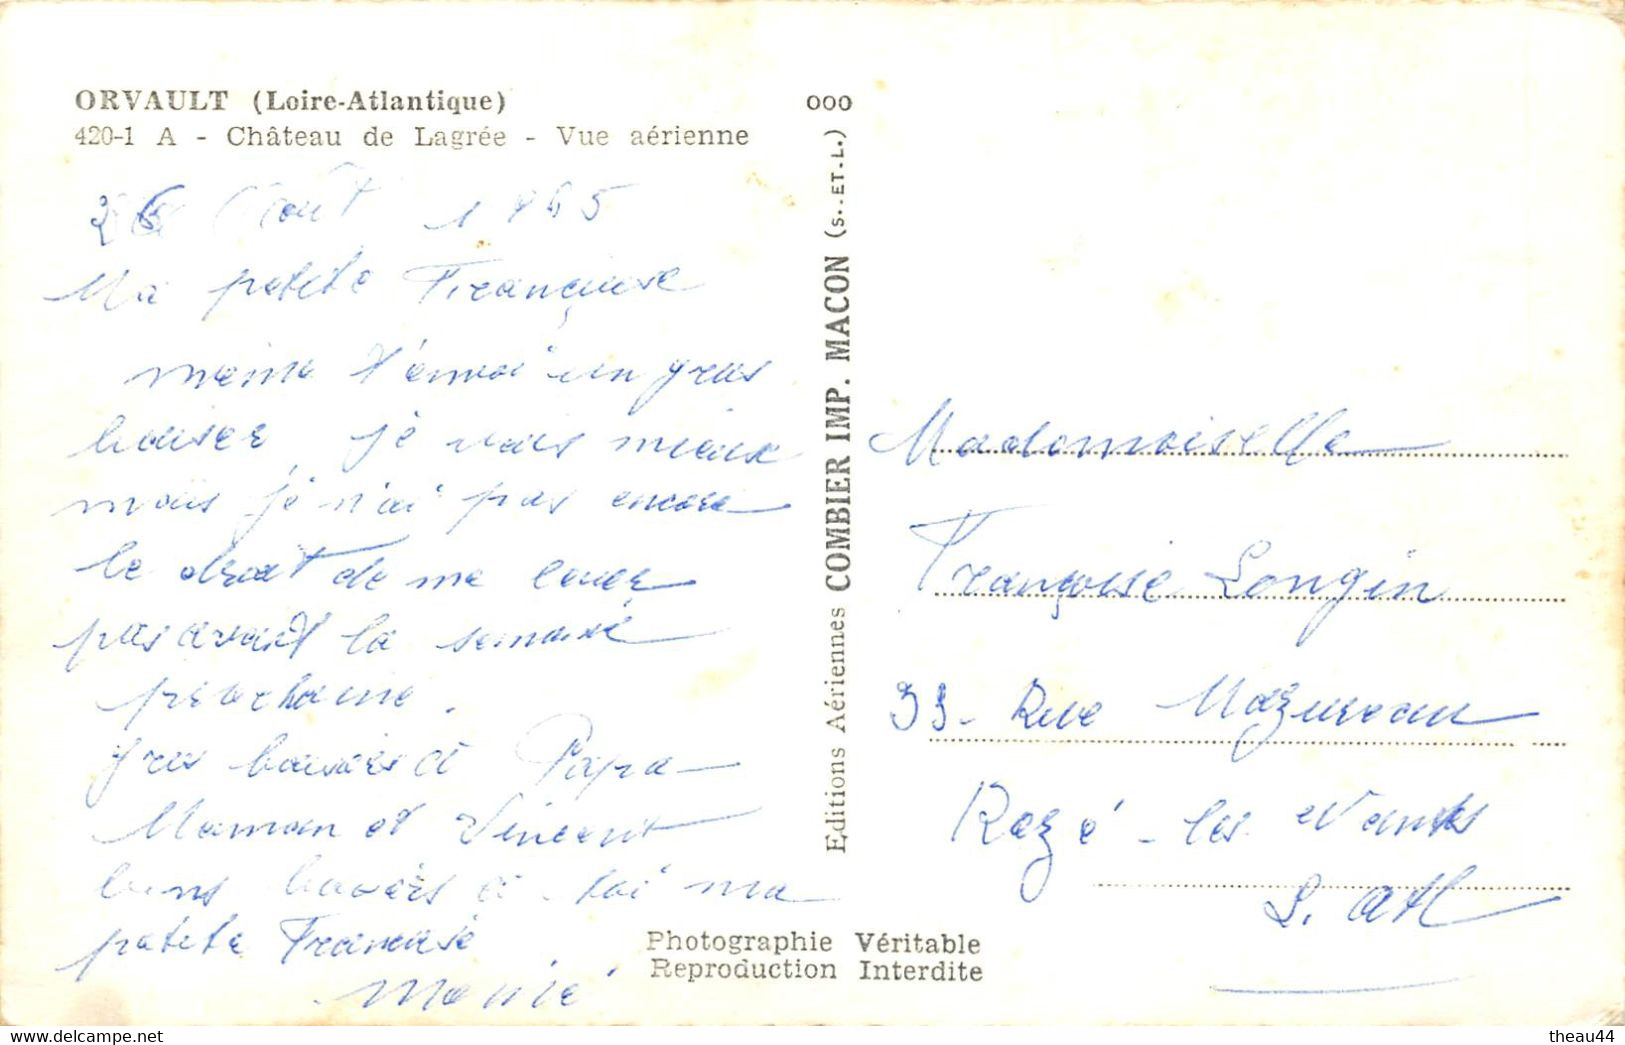 ORVAULT (Loire-Atlantique)
420-1 A - Château de Lagrée - Vue aérienne
26 Août 1965
Ma petite Françoise
t'envoi un gros
baiser je vais mieux
mais je n'ai pas encore
le droit de me lever
pas avant la semaine
prochaine.
gros baisers à Papa
Maman et Vincent
bons baisers à toi ma
petite Françoise
000
Editions Aériennes COMBIER IMP. MACON (S.-ET-L.)
Mademoiselle
Françoise Longin
Rue Mazureau
Rezé-les Nantes
L. Atl
Photographie Véritable
Reproduction Interdite
www.delcampe.net
theau44